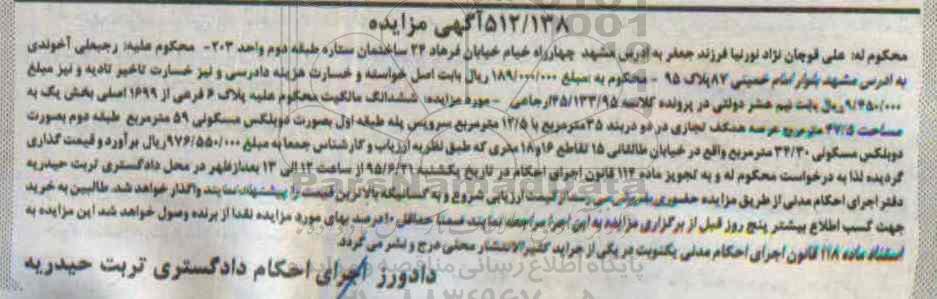 ۵۱۲/۱۳۸آگهی مزایده
محکوم له: علی قوچان نژاد نورنیا فرزند جعفر به آدرس مشهد چهارراه خیام خیابان فرهاد ۲۴ ساختمان ستاره طبقه دوم واحد ۲۰۳- محکوم علیه: رجبعلی آخوندی
به آدرس مشهد بلوار امام خمینی ۸۷پلاک ۹۵ - محکوم به :مبلغ ۱۸۹/۰۰۰/۰۰۰ ریال بابت اصل خواسته و خسارت هزینه دادرسی و نیز خسارت تاخیر تادیه و نیز مبلغ
۹/۴۵۰/۰۰۰ریال بابت نیم عشر دولتی در پرونده کلاسه ۴۵/۱۳۳/۹۵ارجاعی - مورد مزایده: ششدانگ مالکیت محکوم علیه پلاک ۶ فرعی از ۱۶۹۹ اصلی بخش یک به
مساحت ۴۷/۵ مترمربع عرصه همکف تجاری در دو دربند ۳۵مترمربع با ۱۲/۵ مترمربع سرویس پله طبقه اول بصورت دوبلکس مسکونی ۵۹ مترمربع طبقه دوم بصورت
دوبلکس مسکونی ۳۴/۳۰ مترمربع واقع در خیابان طالقانی ۱۵ تقاطع ۱۶و۱۸ متری که طبق نظریه ارزیاب و کارشناس جمعا به مبلغ ۹۷۶/۵۵۰/۰۰۰ریال برآورد و قیمت گذاری
گردیده لذا به درخواست محکوم له و به تجویز ماده ۱۱۴ قانون اجرای احکام در تاریخ یکشنبه ۹۵/۶/۲۱ از ساعت ۱۲ الی ۱۳ بعدازظهر در محل دادگستری تربت حیدریه
دفتر اجرای احکام مدنی از طریق مزایده حضوری بفروش می رسد از قیمت ارزیابی شروع و به کسانیکه بالاترین قیمت را پیشنهاد نمایند واگذار خواهد شد. طالبین به خرید
جهت کسب اطلاع بیشتر پنج روز قبل از برگزاری مزایده به این اجرا مراجعه نمایند ضمنا حداقل ۱۰درصد بهای مورد مزایده نقدا از برنده وصول خواهد شد این مزایده به
استناد ماده ۱۱۸ قانون اجرای احکام مدنی یکنوبت در یکی از جراید کثیرالانتشار محلی درج و نشر می گردد.
دادورز اجرای احکام دادگستری تربت حیدریه
ParsNamadData
پایگاه اطلاع رسانی مناقصه و مزایده